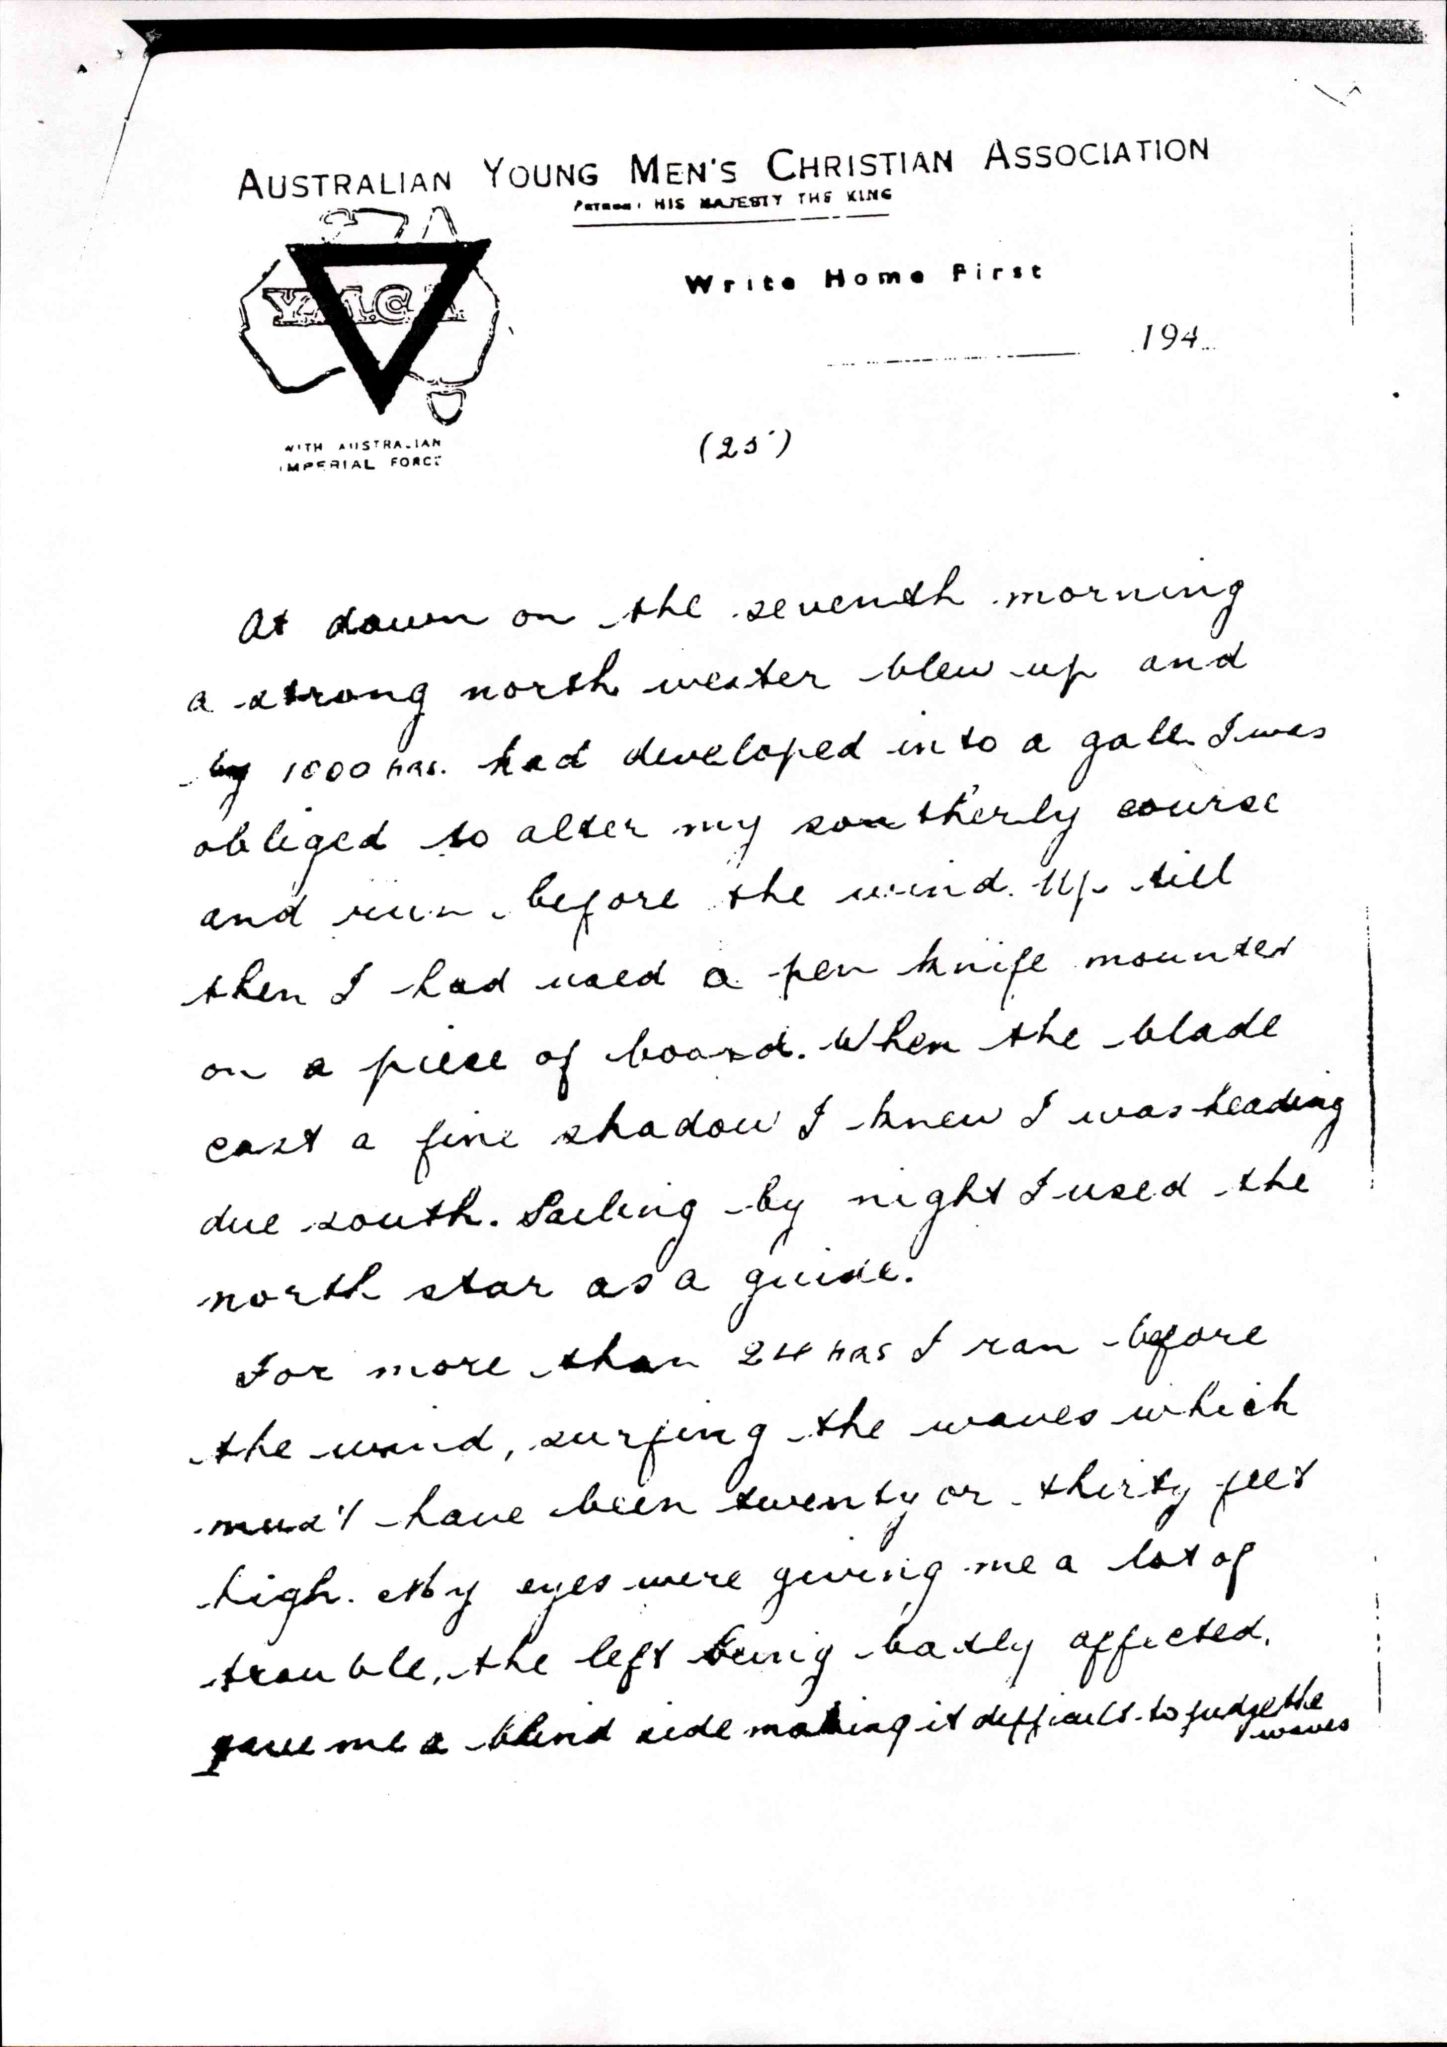 AUSTRALIAN YOUNG MEN'S CHRISTIAN ASSOCIATION
PATRON: HIS MAJESTY THE KING
Y.M.C.A.
Write Home First
194
WITH AUSTRALIAN
IMPERIAL FORCE
(25)
At dawn on the seventh morning
a strong north wester blew up and
by 1000 hrs. had developed into a gale. I was
obliged to alter my southerly course
and run before the wind. Up till
then I had used a pen knife mounted
on a piece of board. When the blade
cast a fine shadow I knew I was heading
due south. Sailing by night I used the
north star as a guide.
For more than 24 hrs I ran before
the wind, surfing the waves which
must have been twenty or thirty feet
high. My eyes were giving me a lot of
trouble, the left being badly affected,
gave me a blind side making it difficult to judge the
waves